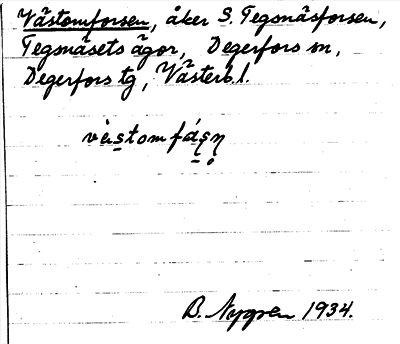 Västomforsen, åker S. Tegsnäsforsen,
Tegsnäsets ägor, Degerfors sn,
Degerfors tg, Västerb.l.
B. Nygren 1934.